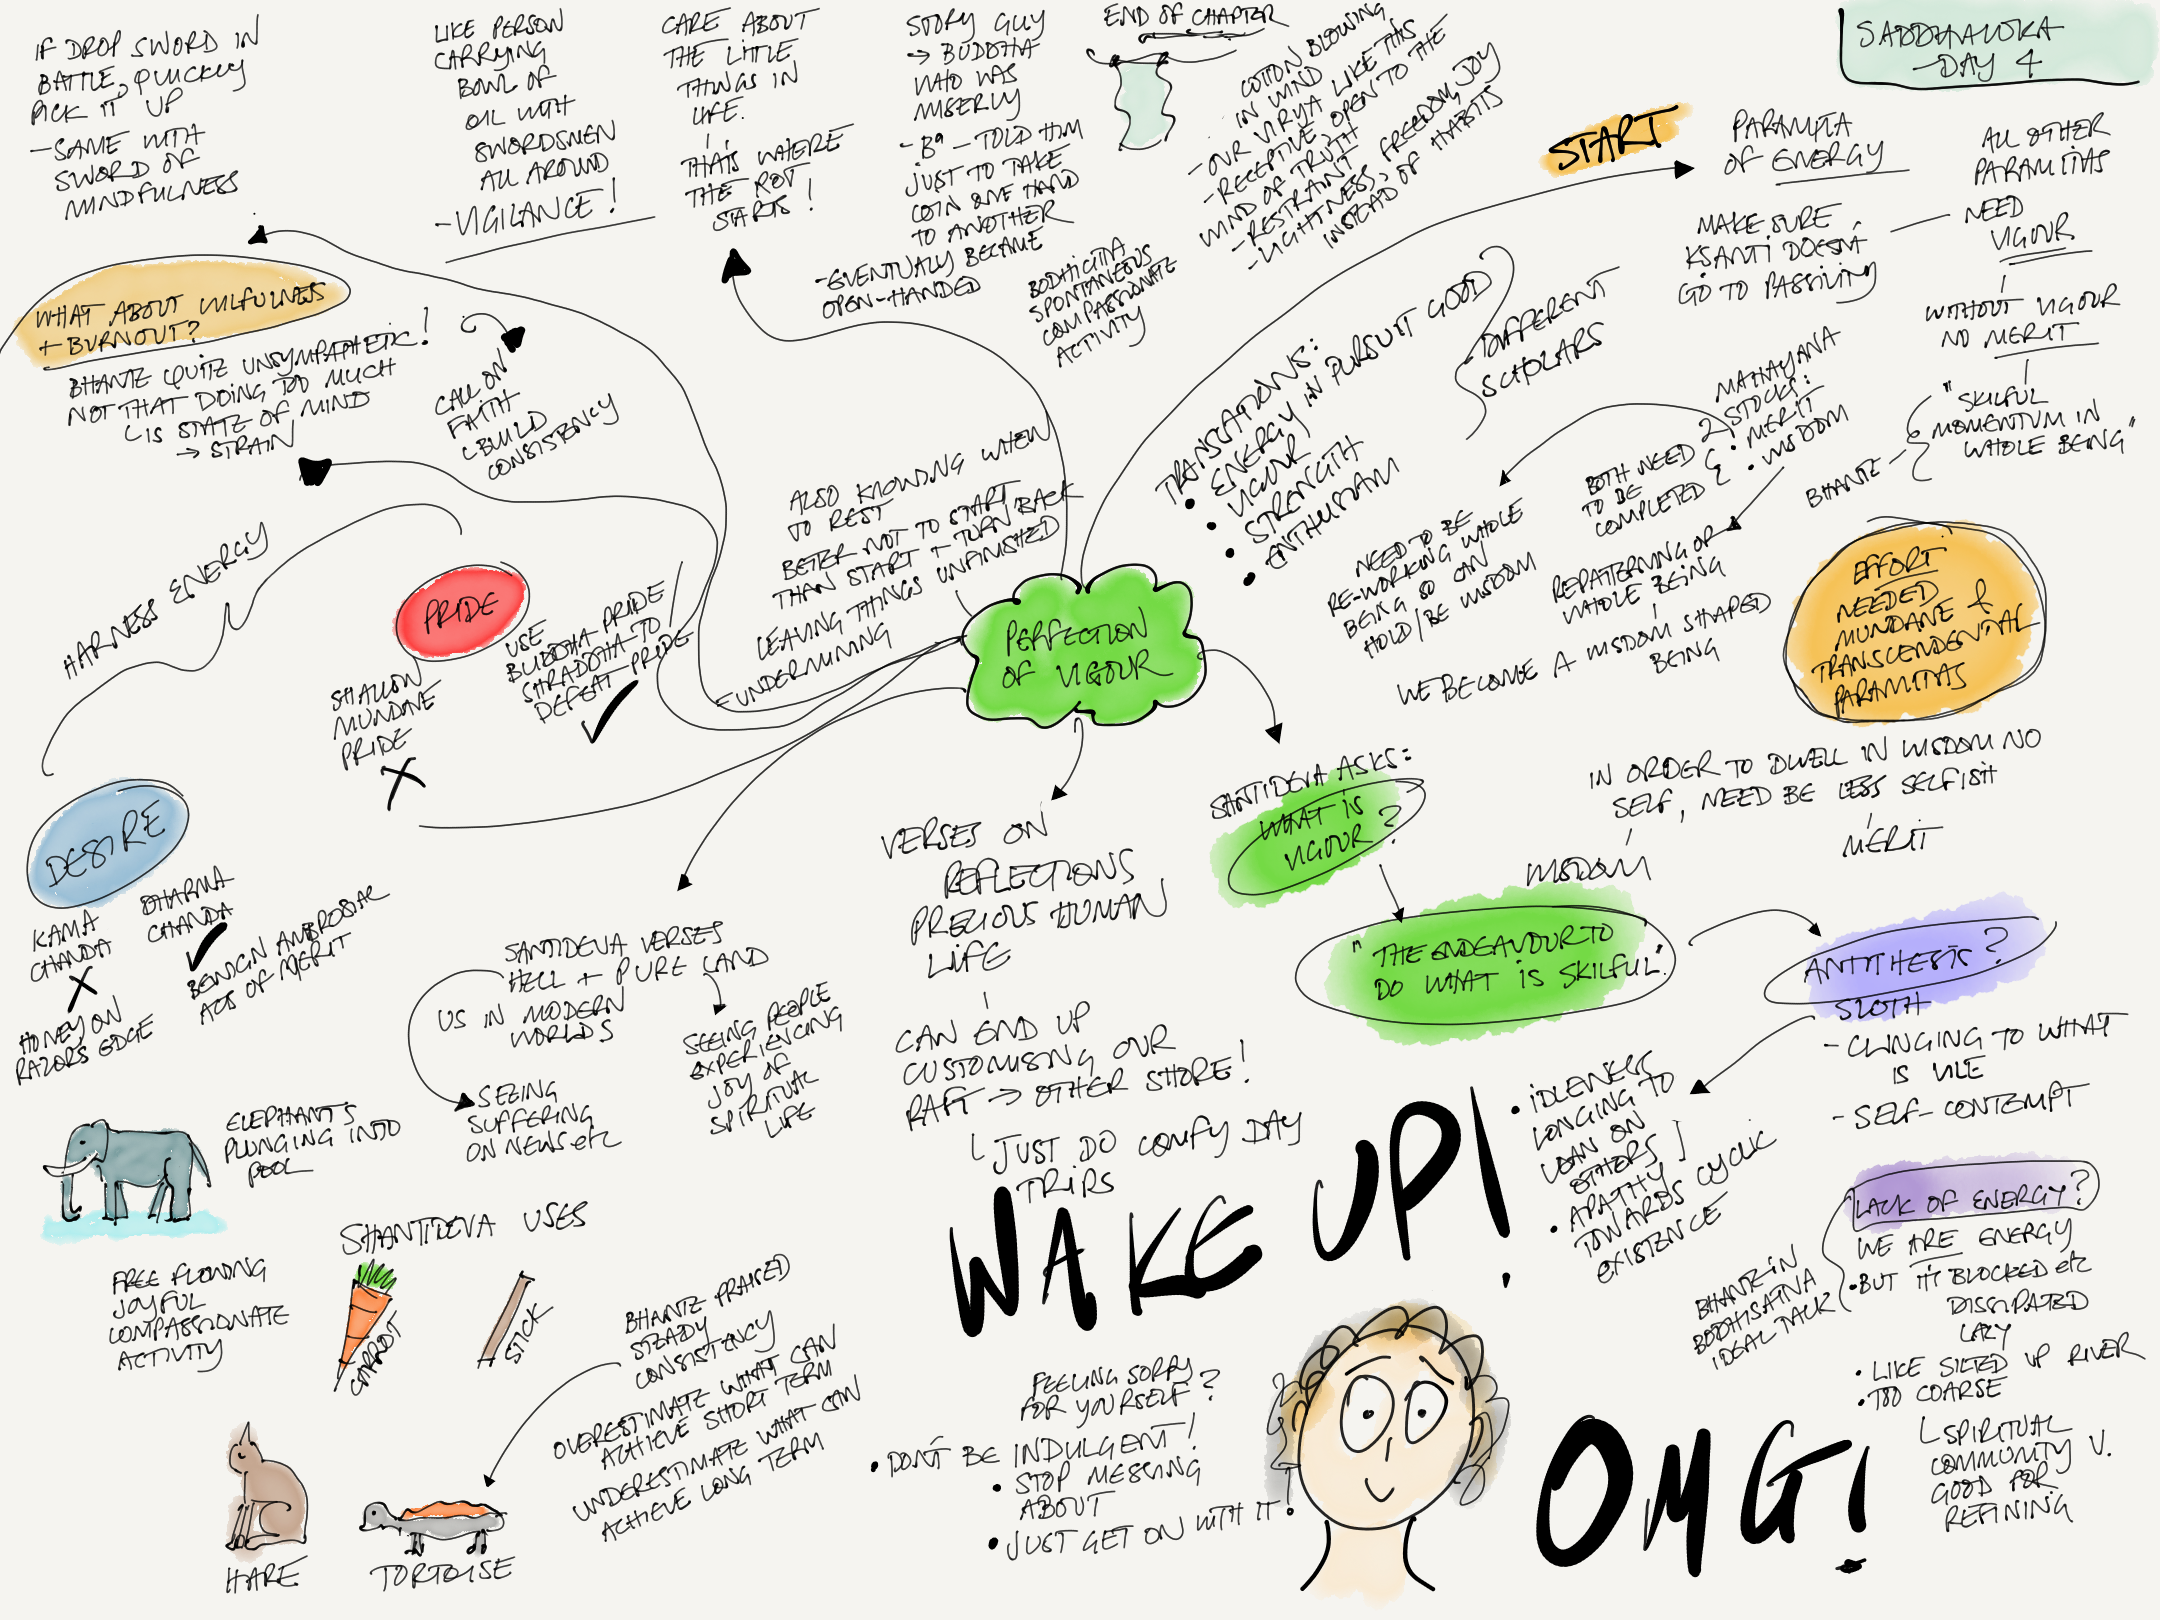 SADDHALOKA
- DAY 4
START
PARAMITA
OF ENERGY
MAKE SURE
KSANTI DOESN'T
GO TO PASSIVITY
ALL OTHER
PARAMITAS
NEED
VIGOUR
WITHOUT VIGOUR
NO MERIT
"SKILFUL
MOMENTUM IN
WHOLE BEING"
BHANTE -
TRANSLATIONS:
• ENERGY IN PURSUIT GOOD
• VIGOUR
• STRENGTH
• ENTHUSIASM
- DIFFERENT
SCHOLARS
MAHAYANA
2 STOCKS:
• MERIT
• WISDOM
BOTH NEED
TO BE
COMPLETED
REPATTERNING OF
WHOLE BEING
NEED TO BE
RE-WORKING WHOLE
BEING SO CAN
HOLD/BE WISDOM
WE BECOME A WISDOM SHAPED
BEING
EFFORT
NEEDED
MUNDANE &
TRANSCENDENTAL
PARAMITAS
PERFECTION
OF VIGOUR
SANTIDEVA ASKS:
WHAT IS
VIGOUR?
"THE ENDEAVOUR TO
DO WHAT IS SKILFUL".
WISDOM
IN ORDER TO DWELL IN WISDOM NO
SELF, NEED BE LESS SELFISH
MERIT
ANTITHESIS?
SLOTH
- CLINGING TO WHAT
IS VILE
- SELF-CONTEMPT
• IDLENESS
LONGING TO
LEAN ON
OTHERS
• APATHY
TOWARDS CYCLIC
EXISTENCE
LACK OF ENERGY?
WE ARE ENERGY
• BUT IT'S BLOCKED etc
DISSIPATED
LAZY
• LIKE SILTED UP RIVER
• TOO COARSE
SPIRITUAL
COMMUNITY V.
GOOD FOR
REFINING
BHANTE IN
BODHISATTVA
IDEAL TALK
VERSES ON
REFLECTIONS
PRECIOUS HUMAN
LIFE
CAN END UP
CUSTOMISING OUR
RAFT → OTHER SHORE!
JUST DO COMFY DAY
TRIPS
WAKE UP!
FEELING SORRY
FOR YOURSELF?
• DON'T BE INDULGENT!
• STOP MESSING
ABOUT
• JUST GET ON WITH IT!
OMG!
SANTIDEVA VERSES
HELL + PURE LAND
US IN MODERN
WORLDS
SEEING
SUFFERING
ON NEWS etc
SEEING PEOPLE
EXPERIENCING
JOY OF
SPIRITUAL
LIFE
SHANTIDEVA USES
CARROT
STICK
BHANTE PRAISED
STEADY
CONSISTENCY
OVERESTIMATE WHAT CAN
ACHIEVE SHORT TERM
UNDERESTIMATE WHAT CAN
ACHIEVE LONG TERM
HARE
TORTOISE
ELEPHANTS
PLUNGING INTO
POOL
FREE FLOWING
JOYFUL
COMPASSIONATE
ACTIVITY
HARNESS ENERGY
DESIRE
KAMA
CHANDA
HONEY ON
RAZORS EDGE
DHARMA
CHANDA
BENIGN AMBROSIAL
ACTS OF MERIT
PRIDE
SHALLOW
MUNDANE
PRIDE
USE
BUDDHA PRIDE/
SHRADDHA TO
DEFEAT PRIDE
WHAT ABOUT WILFULNESS
+ BURNOUT?
BHANTE QUITE UNSYMPATHETIC!
NOT THAT DOING TOO MUCH
IS STATE OF MIND
→ STRAIN
CALL ON
FAITH
BUILD
CONSISTENCY
ALSO KNOWING WHEN
TO REST
BETTER NOT TO START
THAN START + TURN BACK
LEAVING THINGS UNFINISHED
- UNDERMINING
IF DROP SWORD IN
BATTLE, QUICKLY
PICK IT UP
- SAME WITH
SWORD OF
MINDFULNESS
LIKE PERSON
CARRYING
BOWL OF
OIL WITH
SWORDSMEN
ALL AROUND
- VIGILANCE!
CARE ABOUT
THE LITTLE
THINGS IN
LIFE.
THATS WHERE
THE ROT
STARTS!
STORY GUY
→ BUDDHA
WHO WAS
MISERLY
- Ba - TOLD HIM
JUST TO TAKE
COIN ONE HAND
TO ANOTHER
- EVENTUALLY BECAME
OPEN-HANDED
END OF CHAPTER
COTTON BLOWING
IN WIND
- OUR VIRYA LIKE THIS
- RECEPTIVE, OPEN TO THE
WIND OF TRUTH
- RESTRAINT
- LIGHTNESS, FREEDOM, JOY
INSTEAD OF HABITS
BODHICITTA
SPONTANEOUS
COMPASSIONATE
ACTIVITY